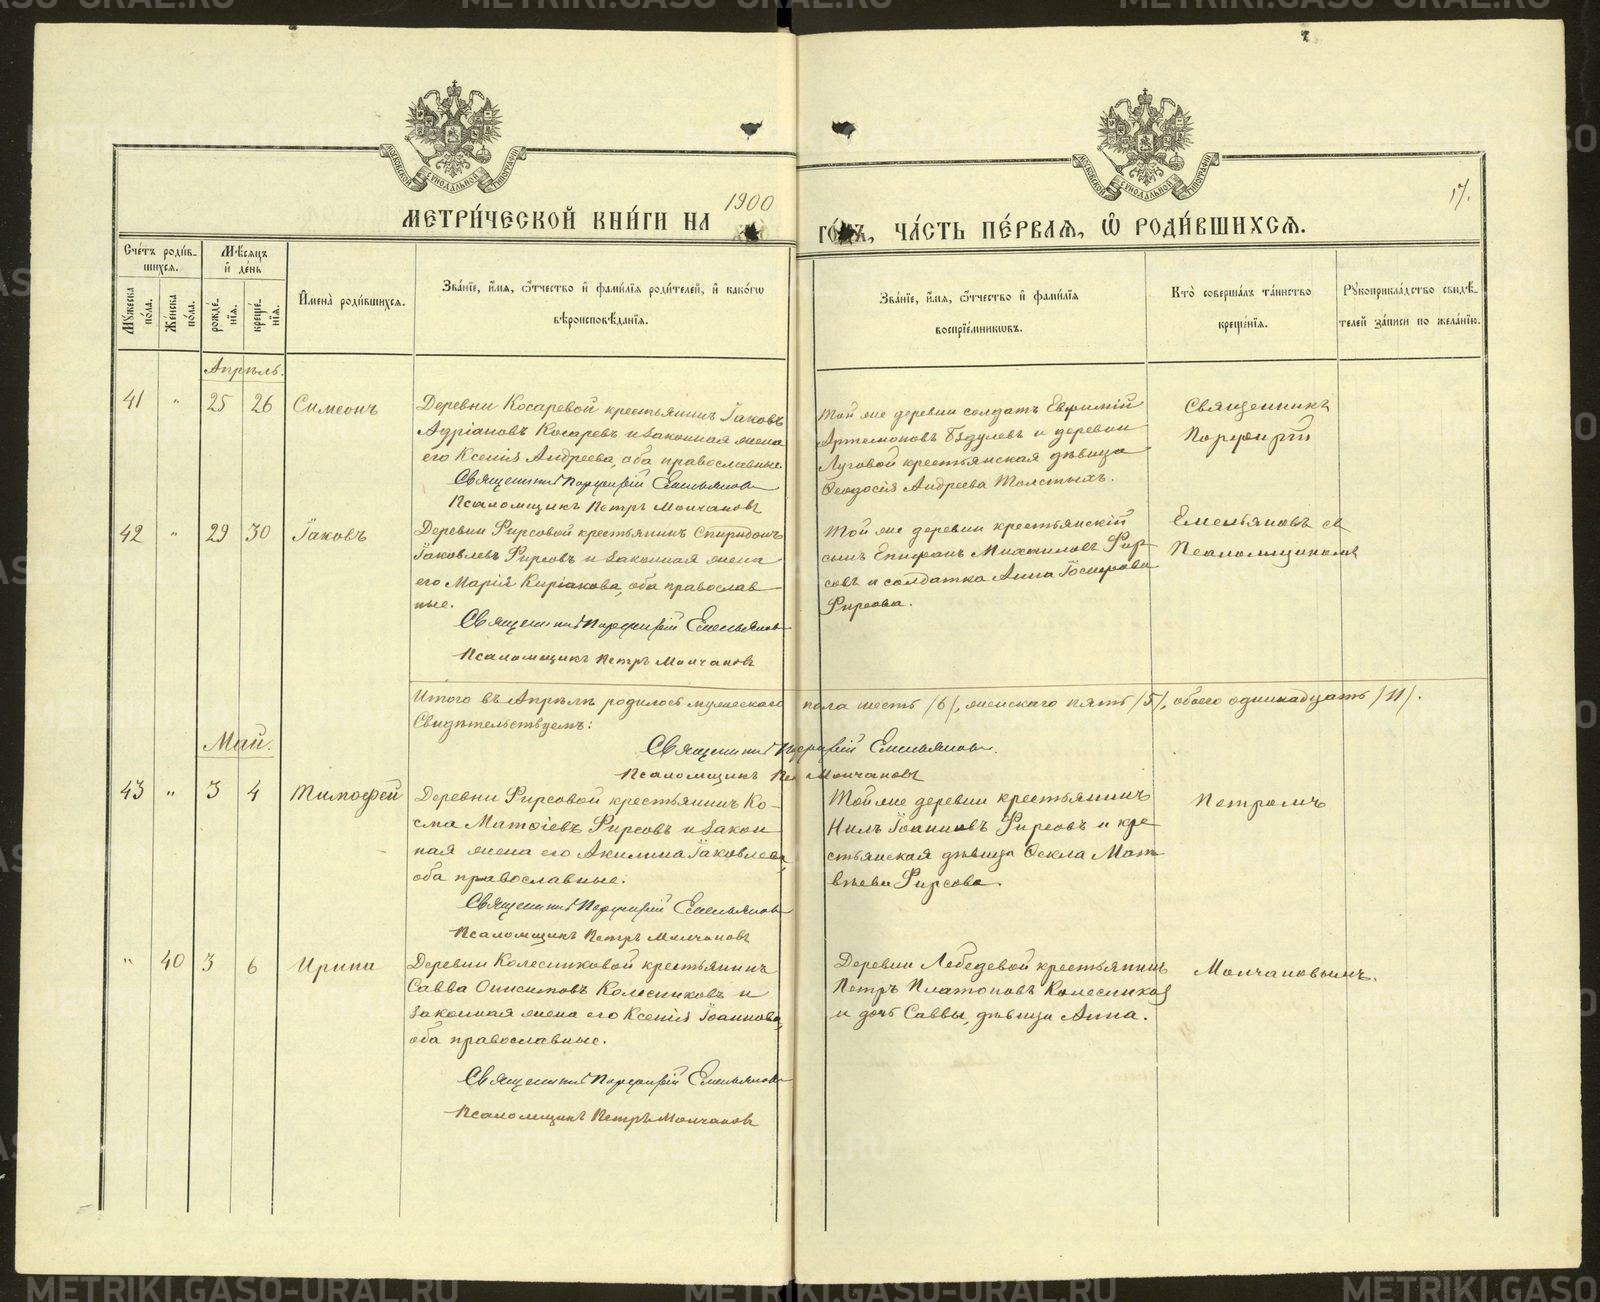 1900
17.
МЕТРИ́ЧЕСКОЙ КНИ́ГИ НА
ГО́ДЪ, ЧА́СТЬ ПЕ́РВАѦ, Ѽ РОДИ́ВШИХСѦ.
Сче́тъ роди́в-
шихся.
Мѣ́сяцъ
и҆ де́нь
Мꙋ́жеска
по́ла.
Же́нска
по́ла.
рожде́-
нїя.
креще́-
нїя.
И҆мена̀ роди́вшихся.
Зва́нїе, и҆́мя, ѻ҆́тчество и҆ фами́лїя роди́телей, и҆ како́гѡ
вѣроисповѣ́данїя.
Зва́нїе, и҆́мя, ѻ҆́тчество и҆ фами́лїя
воспрїе́мникѡвъ.
Кто̀ соверша́лъ та́инство
креще́нїя.
Рꙋкоприкла́дство свидѣ́-
телей за́писи по жела́нїю.
Апрѣль.
41 " 25 26 Симеонъ
Деревни Косаревой крестьянинъ Іаковъ
Адріановъ Косаревъ и законная жена
его Ксенія Андреева, оба православные.
Священникъ Порфирій Емельяновъ
Псаломщикъ Петръ Молчановъ
Той же деревни солдатъ Евфимій
Артемоновъ Бздулевъ и деревни
Луговой крестьянская дѣвица
Ѳеодосія Андреева Толстыхъ.
Священникъ
Порфирій
42 " 29 30 Іаковъ
Деревни Фирсовой крестьянинъ Спиридонъ
Іаковлевъ Фирсовъ и законная жена
его Марія Киріакова, оба православ
ные.
Священникъ Порфирій Емельяновъ
Псаломщикъ Петръ Молчановъ
Той же деревни крестьянскій
сынъ Епифанъ Михаиловъ Фир
совъ и солдатка Анна Іосифова
Фирсова.
Емельяновъ съ
Псаломщикомъ
Итого въ Апрѣлѣ родилось мужескаго пола шесть /6/, женскаго пять /5/, обоего одиннадцать /11/.
Свидѣтельствуемъ:
Священникъ Порфирій Емельяновъ.
Псаломщикъ Петръ Молчановъ
Май.
43 " 3 4 Тимофей
Деревни Фирсовой крестьянинъ Ко-
сма Матѳіевъ Фирсовъ и закон
ная жена его Акилина Іаковлева,
оба православные.
Священникъ Порфирій Емельяновъ
Псаломщикъ Петръ Молчановъ
Той же деревни крестьянинъ
Нилъ Іоанновъ Фирсовъ и кре
стьянская дѣвица Ѳекла Мат
вѣева Фирсова.
Петромъ
" 40 3 6 Ирина
Деревни Колесниковой крестьянинъ
Савва Онисимовъ Колесниковъ и
законная жена его Ксенія Іоаннова,
оба православные.
Священникъ Порфирій Емельяновъ
Псаломщикъ Петръ Молчановъ
Деревни Лебедевой крестьянинъ
Петръ Платоновъ Колесниковъ
и дочь Саввы, дѣвица Анна.
Молчановымъ.